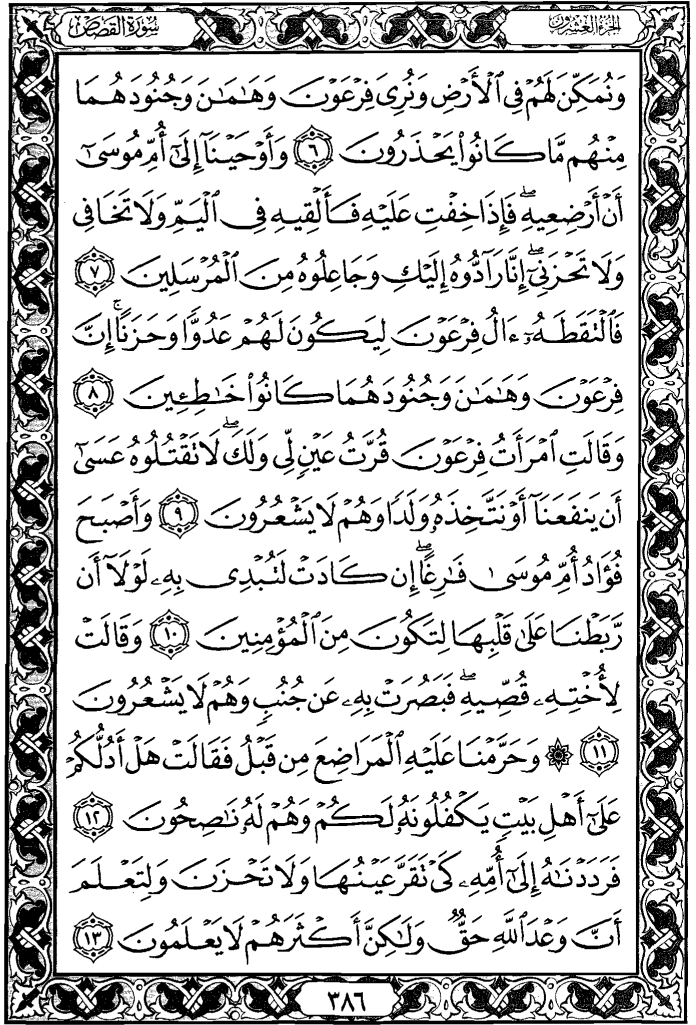 الجزء العشرون
سورة القصص
وَنُمَكِّنَ لَهُمْ فِي ٱلْأَرْضِ وَنُرِيَ فِرْعَوْنَ وَهَٰمَٰنَ وَجُنُودَهُمَا
مِنْهُم مَّا كَانُوا۟ يَحْذَرُونَ ٦ وَأَوْحَيْنَآ إِلَىٰٓ أُمِّ مُوسَىٰٓ
أَنْ أَرْضِعِيهِ ۖ فَإِذَا خِفْتِ عَلَيْهِ فَأَلْقِيهِ فِي ٱلْيَمِّ وَلَا تَخَافِي
وَلَا تَحْزَنِيٓ ۖ إِنَّا رَآدُّوهُ إِلَيْكِ وَجَاعِلُوهُ مِنَ ٱلْمُرْسَلِينَ ٧
فَٱلْتَقَطَهُۥٓ ءَالُ فِرْعَوْنَ لِيَكُونَ لَهُمْ عَدُوًّا وَحَزَنًا ۗ إِنَّ
فِرْعَوْنَ وَهَٰمَٰنَ وَجُنُودَهُمَا كَانُوا۟ خَٰطِـِٔينَ ٨
وَقَالَتِ ٱمْرَأَتُ فِرْعَوْنَ قُرَّتُ عَيْنٍ لِّي وَلَكَ ۖ لَا تَقْتُلُوهُ عَسَىٰٓ
أَن يَنفَعَنَآ أَوْ نَتَّخِذَهُۥ وَلَدًا وَهُمْ لَا يَشْعُرُونَ ٩ وَأَصْبَحَ
فُؤَادُ أُمِّ مُوسَىٰ فَٰرِغًا ۖ إِن كَادَتْ لَتُبْدِي بِهِۦ لَوْلَآ أَن
رَّبَطْنَا عَلَىٰ قَلْبِهَا لِتَكُونَ مِنَ ٱلْمُؤْمِنِينَ ١٠ وَقَالَتْ
لِأُخْتِهِۦ قُصِّيهِ ۖ فَبَصُرَتْ بِهِۦ عَن جُنُبٍ وَهُمْ لَا يَشْعُرُونَ
١١ ۞ وَحَرَّمْنَا عَلَيْهِ ٱلْمَرَاضِعَ مِن قَبْلُ فَقَالَتْ هَلْ أَدُلُّكُمْ
عَلَىٰٓ أَهْلِ بَيْتٍ يَكْفُلُونَهُۥ لَكُمْ وَهُمْ لَهُۥ نَٰصِحُونَ ١٢
فَرَدَدْنَٰهُ إِلَىٰٓ أُمِّهِۦ كَيْ تَقَرَّ عَيْنُهَا وَلَا تَحْزَنَ وَلِتَعْلَمَ
أَنَّ وَعْدَ ٱللَّهِ حَقٌّ وَلَٰكِنَّ أَكْثَرَهُمْ لَا يَعْلَمُونَ ١٣
٣٨٦